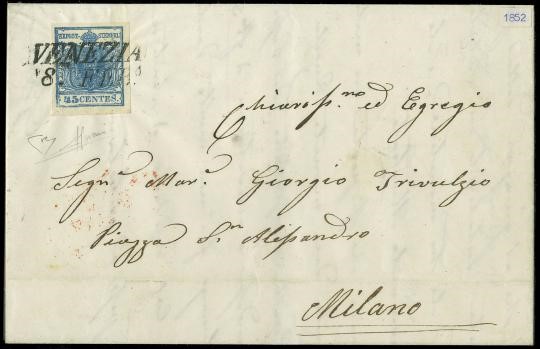 1852
KKPOST-STEMPEL
VENEZIA
8. FEB.
45 CENTES.
Chiariss.mo ed Egregio
Segn.r Mar.e Giorgio Trivulzio
Piazza S.n Alessandro
Milano